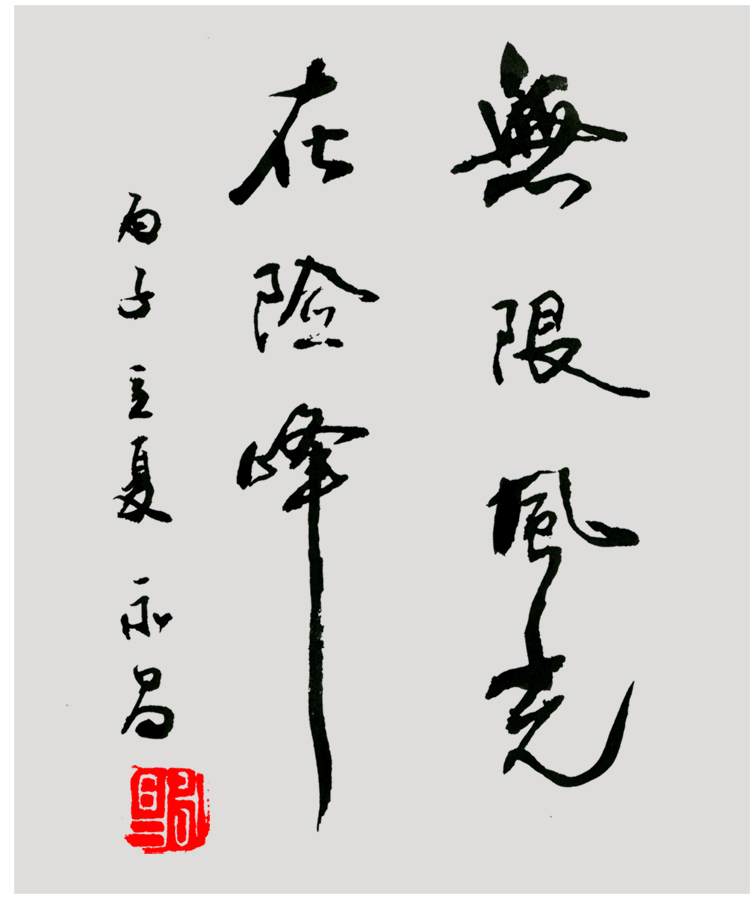 無限風光
在險峰
丙子立夏 永昌